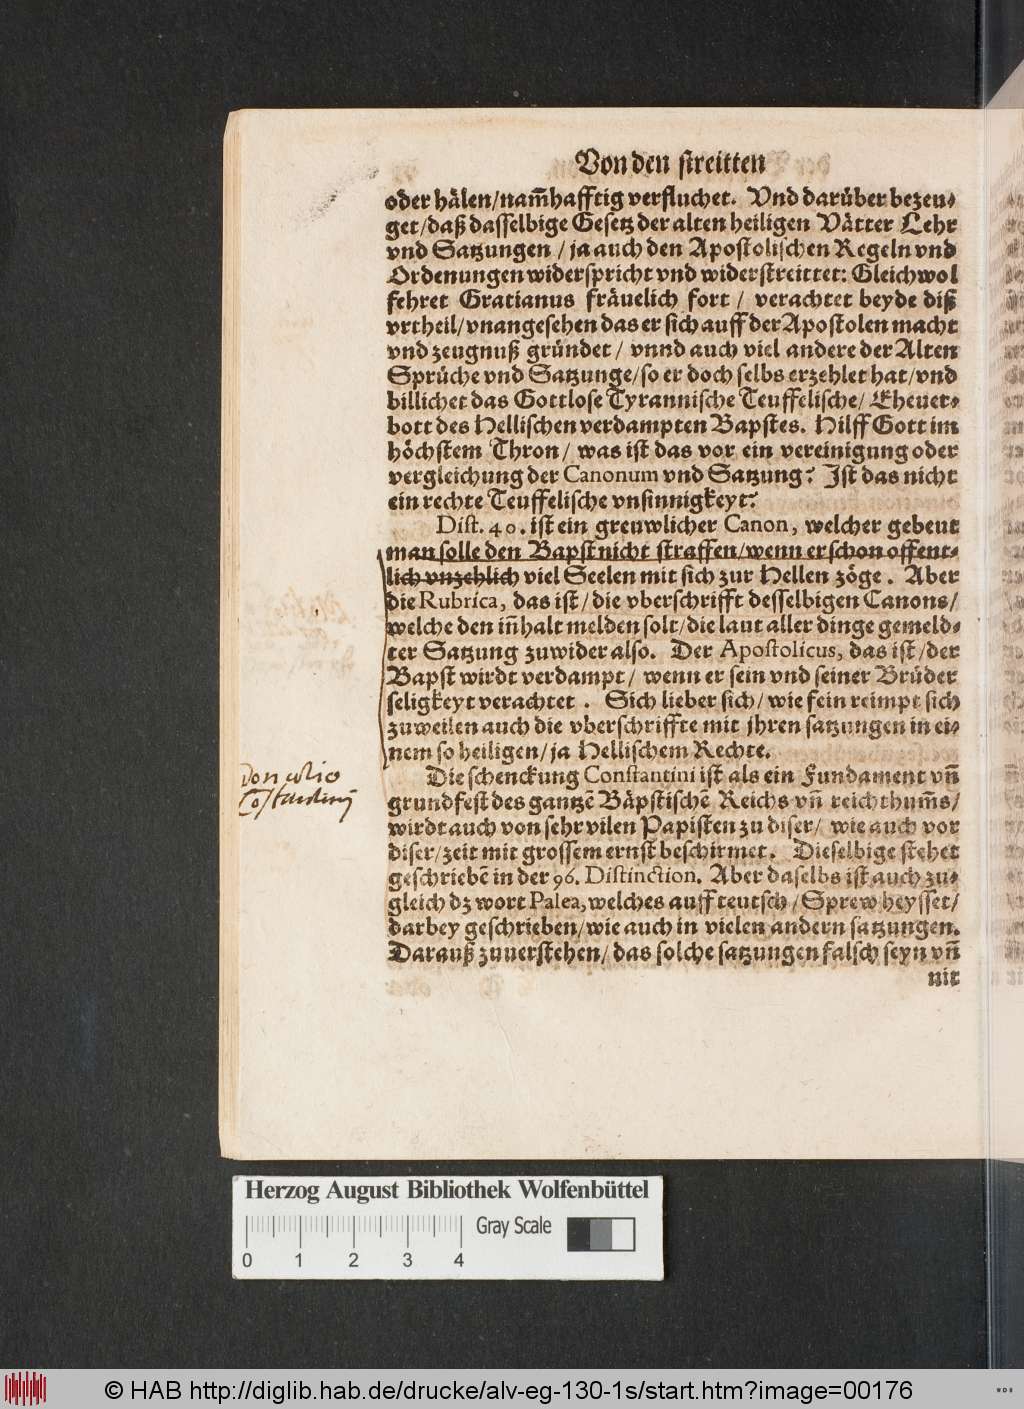 Von den streitten
oder hålen/nam̃hafftig verfluchet. Vnd darüber bezeu⸗
get/daß dasselbige Gesetz der alten heiligen Våtter Lehr
vnd Satzungen / ja auch den Apostolischen Regeln vnd
Ordenungen widerspricht vnd widerstreittet: Gleichwol
fehret Gratianus fråuelich fort / verachtet beyde diß
vrtheil/vnangesehen das er sich auff der Apostolen macht
vnd zeugnuß gründet / vnnd auch viel andere der Alten
Sprüche vnd Satzunge/so er doch selbs erzehlet hat/vnd
billichet das Gottlose Tyrannische Teuffelische/ Eheuer⸗
bott des Hellischen verdampten Bapstes. Hilff Gott im
höchstem Thron / was ist das vor ein vereinigung oder
vergleichung der Canonum vnd Satzung? Ist das nicht
ein rechte Teuffelische vnsinnigkeyt?
Dist. 40. ist ein greuwlicher Canon, welcher gebeut
man solle den Bapst nicht straffen/wenn er schon offent⸗
lich vnzehlich viel Seelen mit sich zur Hellen zöge. Aber
die Rubrica, das ist/die vberschrifft desselbigen Canons/
welche den iñhalt melden solt/die laut aller dinge gemeld⸗
ter Satzung zuwider also. Der Apostolicus, das ist/der
Bapst wirdt verdampt/ wenn er sein vnd seiner Brüder
seligkeyt verachtet . Sich lieber sich/wie fein reimpt sich
zuweilen auch die vberschriffte mit jhren satzungen in ei⸗
nem so heiligen/ja Hellischem Rechte.
Die schenckung Constantini ist als ein Fundament vñ
grundfest des gantzẽ Båpstischẽ Reichs vñ reichthum̃s/
wirdt auch von sehr vilen Papisten zu diser/ wie auch vor
diser/zeit mit grossem ernst beschirmet. Dieselbige stehet
geschriebẽ in der 96. Distinction. Aber daselbs ist auch zu⸗
gleich dz wort Palea, welches auff teutsch/Sprew heysset/
darbey geschrieben/wie auch in vielen andern satzungen.
Darauß zuuerstehen/das solche satzungen falsch seyn vñ
nit
Donatio
Co[n]stantinj
Herzog August Bibliothek Wolfenbüttel
Gray Scale
0 1 2 3 4
© HAB http://diglib.hab.de/drucke/alv-eg-130-1s/start.htm?image=00176